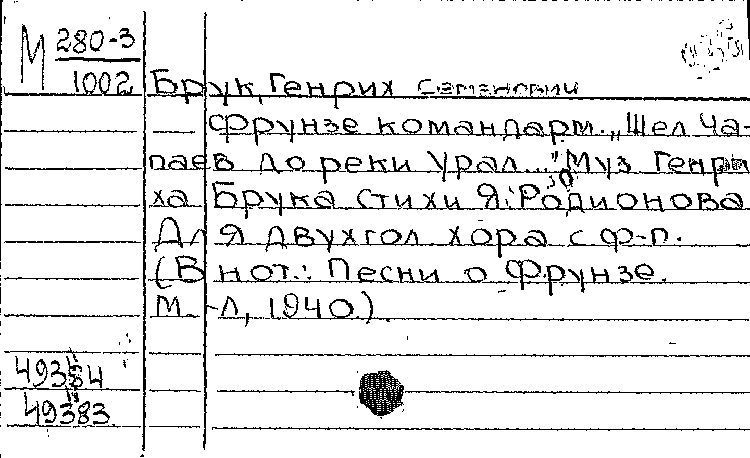 М 280-3
1002
Брук, Генрих Семенович
Фрунзе командарм. „Шел Ча-
паев до реки Урал..." Муз Генри
ха Брука стихи Я. Родионова
Для двухгол хора с ф-п.
(В нот.: Песни о Фрунзе.
М.-Л, 1940)
49383